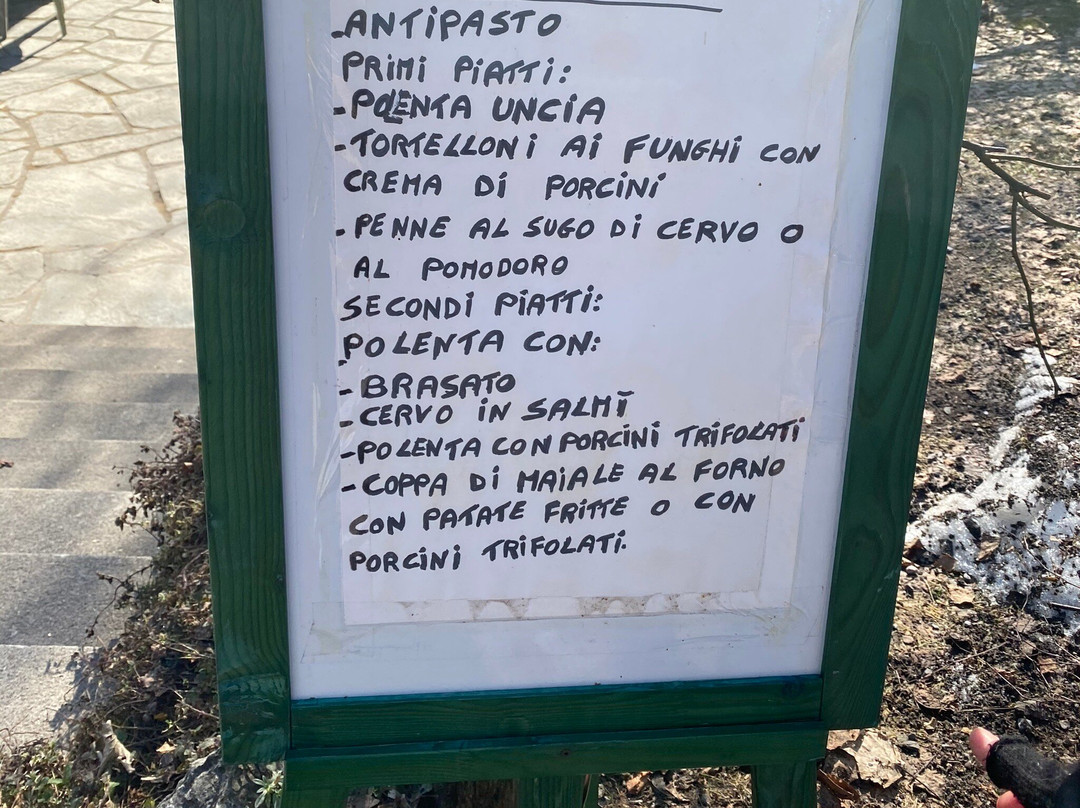 -ANTIPASTO
PRIMI PIATTI:
-POLENTA UNCIA
-TORTELLONI AI FUNGHI CON
CREMA DI PORCINI
-PENNE AL SUGO DI CERVO O
AL POMODORO
SECONDI PIATTI:
POLENTA CON:
-BRASATO
-CERVO IN SALMÌ
-POLENTA CON PORCINI TRIFOLATI
-COPPA DI MAIALE AL FORNO
CON PATATE FRITTE O CON
PORCINI TRIFOLATI.